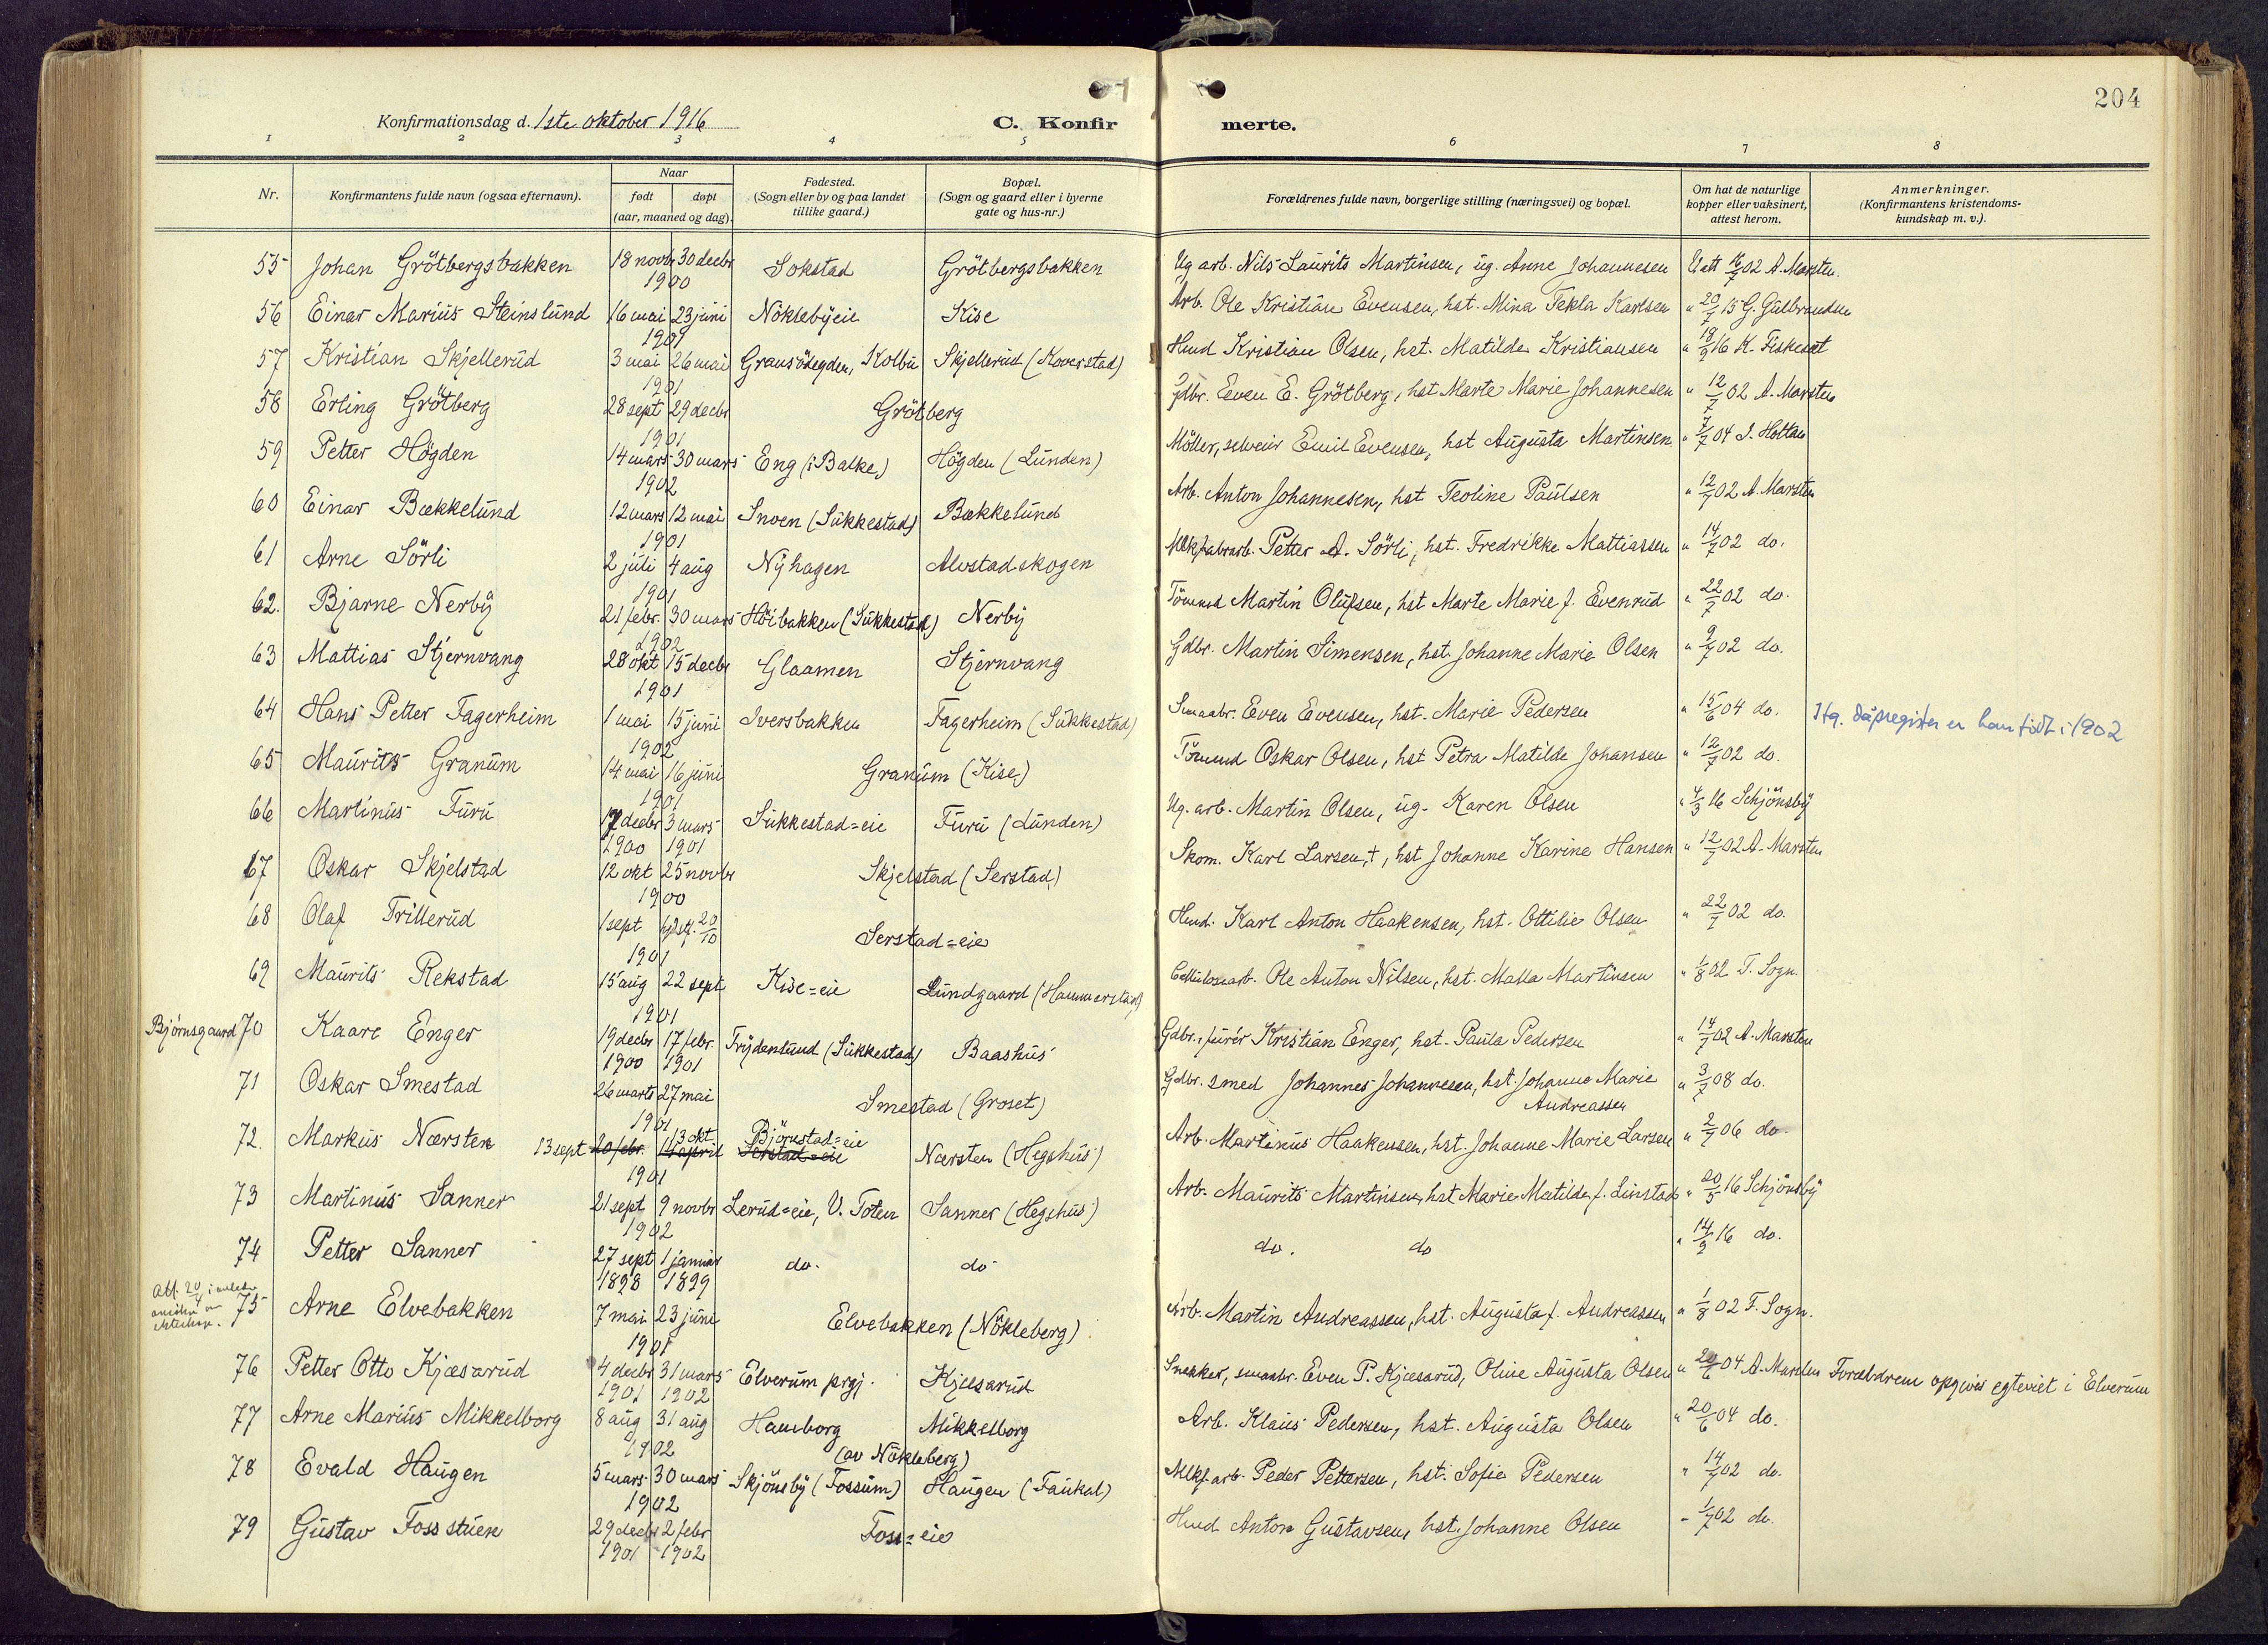 204
Konfirmationsdag d. 1ste oktober 1916 C. Konfirmerte.
1 2 3 4 5 6 7 8
Nr. Konfirmantens fulde navn (ogsaa efternavn). Naar født døpt (aar, maaned og dag). Fødested. (Sogn eller by og paa landet tillike gaard.) Bopæl. (Sogn og gaard eller i byerne gate og hus-nr.) Forældrenes fulde navn, borgerlige stilling (næringsvei) og bopæl. Om hat de naturlige kopper eller vaksinert, attest herom. Anmerkninger. (Konfirmantens kristendomskundskap m. v.).
55 Johan Grötbergsbakken 18 novbr 30 decbr 1900 Sokstad Grötbergsbakken Ug arb. Nils Laurits Martinsen, ug. Anne Johannesen V. att 16/7 02 A. Marsten.
56 Einar Marius Steinslund 16 mai 23 juni 1901 Nöklebyeie Kise Arb. Ole Kristian Evensen, hst. Mina Tekla Karlsen " 20/7 15 G. Gulbrandsen
57 Kristian Skjellerud 3 mai 26 mai 1901 Gransösegden, Kolbu Skjellerud (Koverstad) Hmd Kristian Olsen, hst. Matilde Kristiansen " 18/9 16 K. Fiskeset
58 Erling Grötberg 28 sept 29 decbr 1901 Grötberg Gdbr. Even E. Grötberg, hst Marte Marie Johannesen " 12/7 02 A. Marsten
59 Petter Högden 14 mars 30 mars 1902 Eng (i Balke) Högden (Lunden) Möller, selveier Emil Evensen, hst Augusta Martinsen " 7/7 04 J. Holtan
60 Einar Bækkelund 12 mars 12 mai 1901 Snoen (Sukkestad) Bækkelund Arb. Anton Johannesen, hst Teoline Paulsen " 12/7 02 A. Marsten
61 Arne Sörli 2 juli 4 aug 1901 Nyhagen Alvstadskogen Mlkfabrarb. Petter A. Sörli, hst. Fredrikke Mattiassen " 14/7 02 do.
62. Bjarne Nerby 21 febr. 30 mars 1902 Höibakken (Sukkestad) Nerby Tömmd Martin Olufsen, hst Marte Marie f. Evenrud " 22/7 02 do.
63 Mattias Stjernvang 28 okt 15 decbr 1901 Glaamen Stjernvang Gdbr. Martin Simensen, hst. Johanne Marie Olsen " 9/7 02 do.
64 Hans Petter Fagerheim 1 mai 15 juni 1902 Iversbakken Fagerheim (Sukkestad) Smaabr. Even Evensen, hst. Marie Pedersen " 15/6 04 do. Iflg. dåpsregister er han født i 1902
65 Maurits Granum 14 mai 16 juni 1901 Granum (Kise) Tömmd Oskar Olsen, hst Petra Matilde Johansen " 12/7 02 do.
66 Martinus Furu 17 decbr 3 mars 1900 1901 Sukkestad=eie Furu (Lunden) Ug. arb. Martin Olsen, ug. Karen Olsen " 4/3 16 Schjönsby
67 Oskar Skjelstad 12 okt 25 novbr 1900 Skjelstad (Serstad) Skom. Karl Larsen, †, hst Johanne Karine Hansen " 12/7 02 A. Marsten
68 Olaf Trillerud 1 sept hjdst. 20/10 1901 Serstad=eie Hmd. Karl Anton Haakensen, hst. Ottilie Olsen " 22/7 02 do.
69 Maurits Rekstad 15 aug 22 sept 1901 Kise=eie Lundgaard (Hammerstad) Cellulosearb. Ole Anton Nilsen, hst. Malla Martinsen " 1/8 02 T. Sogn.
Björnsgaard 70 Kaare Enger 19 decbr 17 febr. 1900 1901 Frydenlund (Sukkestad) Baashus Gdbr., furér Kristian Enger, hst. Paula Pedersen " 14/7 02 A. Marsten
71 Oskar Smestad 26 marts 27 mai 1901 Smestad (Groset) Gdbr. smed Johannes Johannesen, hst. Johanne Marie Andreassen " 3/7 08 do.
72. Markus Nærsten 13 sept 20 febr. 13 okt 14 april 1901 Björnstad=eie Serstad=eie Nærsten (Hegshus) Arb. Martinus Haakensen, hst. Johanne Marie Larsen " 2/7 06 do.
73 Martinus Sanner 21 sept 9 novbr 1902 Lerud=eie, V. Toten Sanner (Hegshus) Arb. Maurits Martinsen, hst Marie Matilde f. Linstad " 20/5 16 Schjönsby
74 Petter Sanner 27 sept 1 januar 1898 1899 do. do do. do " 14/9 16 do.
75 Arne Elvebakken 7 mai 23 juni 1901 Elvebakken (Nökleberg) Arb. Martin Andreassen, hst. Augusta f. Andreassen " 1/8 02 T. Sogn.
76 Petter Otto Kjæsarud 4 decbr 31 mars 1901 1902 Elverum prgj. Kjæsarud Snekker, smaabr. Even P. Kjæsarud, Oline Augusta Olsen " 20/6 04 A. Marsten Forældrene opgives egteviet i Elverum
77 Arne Marius Mikkelborg 8 aug 31 aug 1902 Hamborg Mikkelborg (av Nökleberg) Arb. Klaus Pedersen, hst. Augusta Olsen " 20/6 04 do.
78 Evald Haugen 5 mars 30 mars 1902 Skjönsby (Fossum) Haugen (Faukal) Mlkf. arb. Peder Pettersen, hst. Sofie Pedersen " 14/7 02 do.
79 Gustav Fosstuen 29 decbr 2 febr 1901 1902 Foss=eie Hmd Anton Gustavsen, hst. Johanne Olsen " 1/7 02 do.